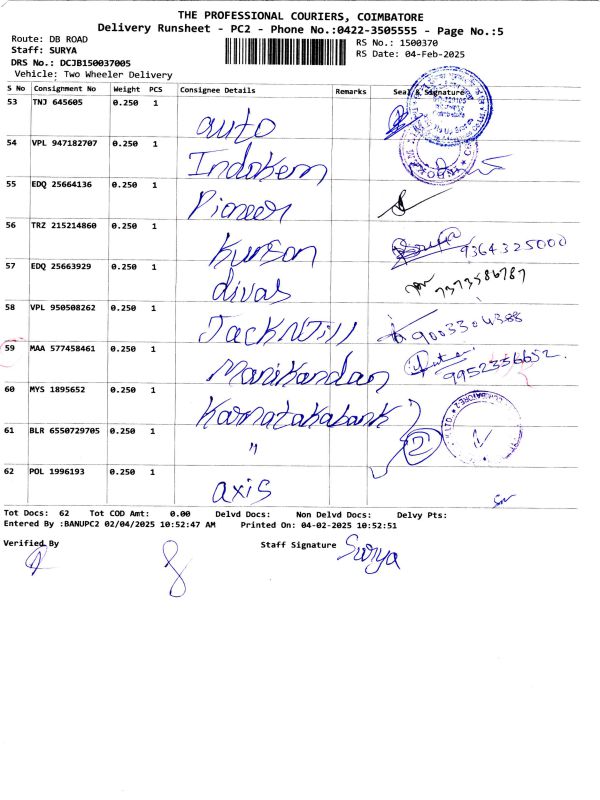 THE PROFESSIONAL COURIERS, COIMBATORE
Delivery Runsheet - PC2 - Phone No.:0422-3505555 - Page No.:5
Route: DB ROAD
RS No.: 1500370
Staff: SURYA
RS Date: 04-Feb-2025
DRS No.: DCJB150037005
Vehicle: Two Wheeler Delivery
S No Consignment No Weight PCS Consignee Details Remarks Seal & Signature
53 TNJ 645605 0.250 1 auto
54 VPL 947182707 0.250 1 Indokem
55 EDQ 25664136 0.250 1 Pioneer
56 TRZ 215214860 0.250 1 Kurson 9364325000
57 EDQ 25663929 0.250 1 divas 7373586787
58 VPL 950508262 0.250 1 JackNJill 9003304388
59 MAA 577458461 0.250 1 Manikandan 9952356652.
60 MYS 1895652 0.250 1 Karnatakabank
61 BLR 6550729705 0.250 1 " 2
62 POL 1996193 0.250 1 axis
Tot Docs: 62 Tot COD Amt: 0.00 Delvd Docs: Non Delvd Docs: Delvy Pts:
Entered By :BANUPC2 02/04/2025 10:52:47 AM Printed On: 04-02-2025 10:52:51
Verified By Staff Signature Surya